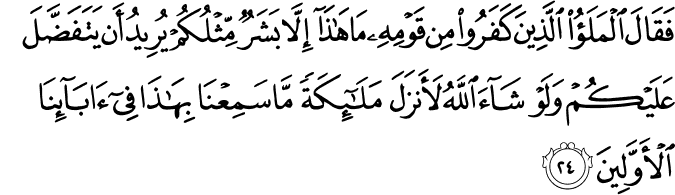 فَقَالَ ٱلْمَلَؤُا۟ ٱلَّذِينَ كَفَرُوا۟ مِن قَوْمِهِۦ مَا هَٰذَآ إِلَّا بَشَرٌ مِّثْلُكُمْ يُرِيدُ أَن يَتَفَضَّلَ
عَلَيْكُمْ وَلَوْ شَآءَ ٱللَّهُ لَأَنزَلَ مَلَٰٓئِكَةً مَّا سَمِعْنَا بِهَٰذَا فِىٓ ءَابَآئِنَا
ٱلْأَوَّلِينَ ٢٤